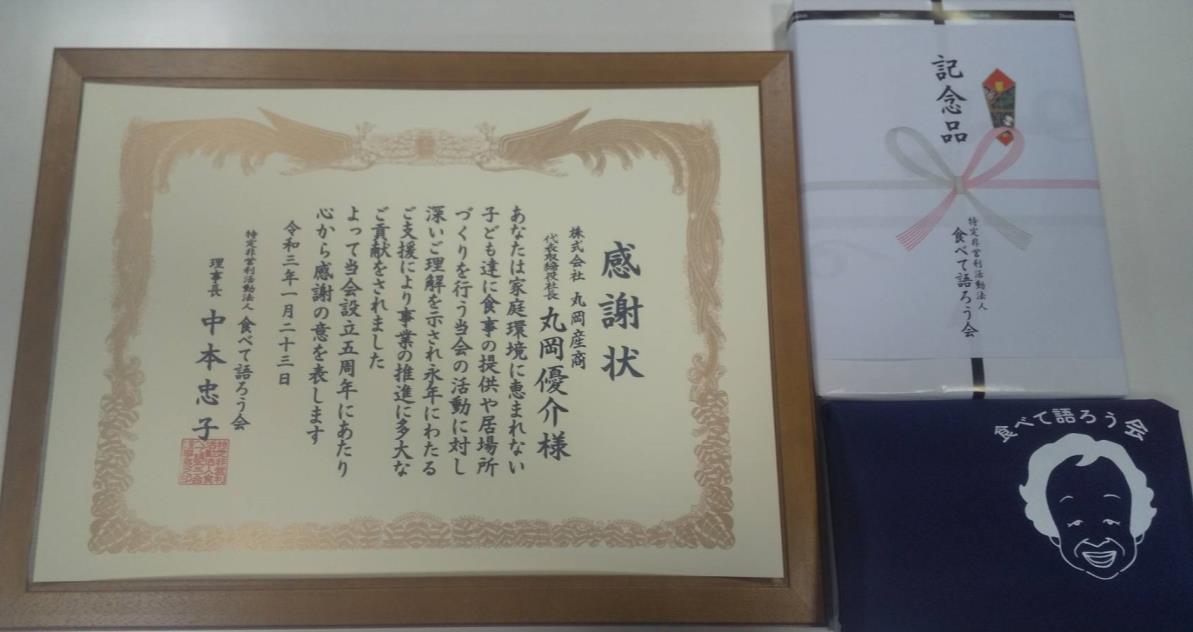 感謝状
株式会社 丸岡産商
代表取締役社長 丸岡優介様
あなたは家庭環境に恵まれない
子ども達に食事の提供や居場所
づくりを行う当会の活動に対し
深いご理解を示され永年にわたる
ご支援により事業の推進に多大な
ご貢献をされました
よって当会設立五周年にあたり
心から感謝の意を表します
令和三年一月二十三日
特定非営利活動法人 食べて語ろう会
理事長 中本忠子
記念品
特定非営利活動法人
食べて語ろう会
食べて語ろう会